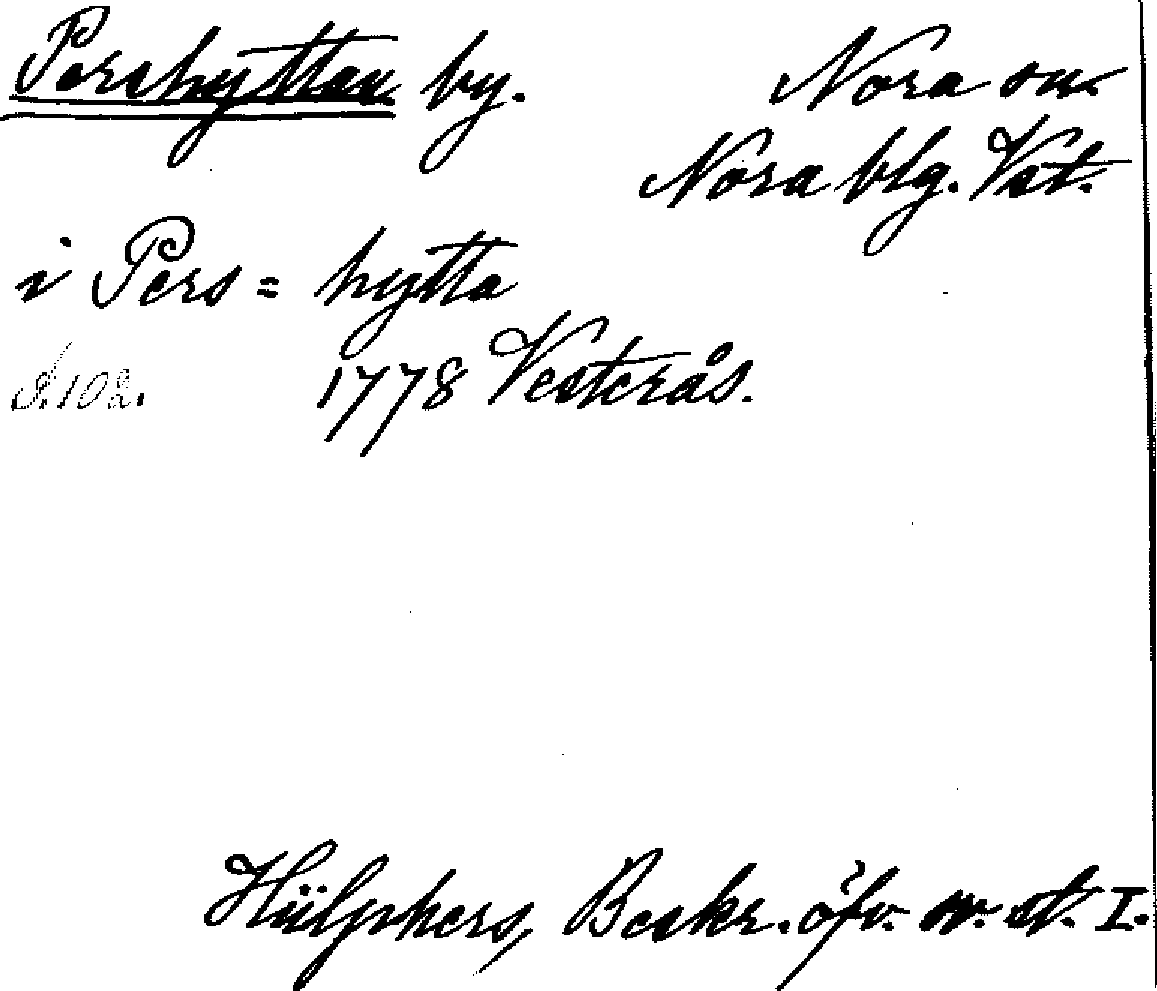 Pershyttan by. Nora sn.
Nora blg. Vst.
i Pers = hytta
S. 102. 1778 Vesterås.
Hülphers, Beskr. öfv. sv. st. I.